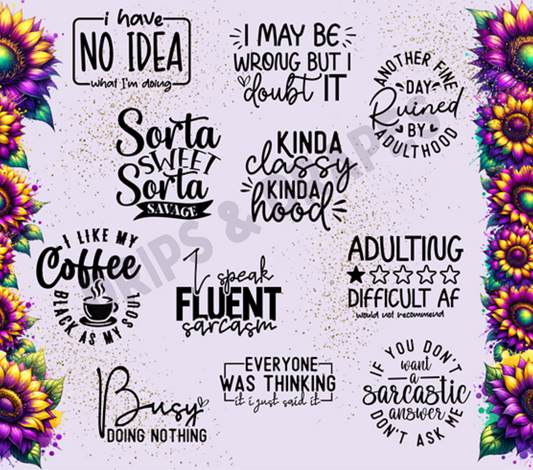 i have
NO IDEA
what I'm doing
I MAY BE
WRONG BUT I
doubt IT
ANOTHER FINE
DAY
Ruined
BY
ADULTHOOD
Sorta
SWEET
Sorta
SAVAGE
KINDA
classy
KINDA
hood
I LIKE MY
Coffee
BLACK AS MY SOUL
I speak
FLUENT
sarcasm
ADULTING
DIFFICULT AF
would not recommend
Busy
DOING NOTHING
EVERYONE
WAS THINKING
it i just said it
IF YOU DON'T
want
a
sarcastic
answer
DON'T ASK ME